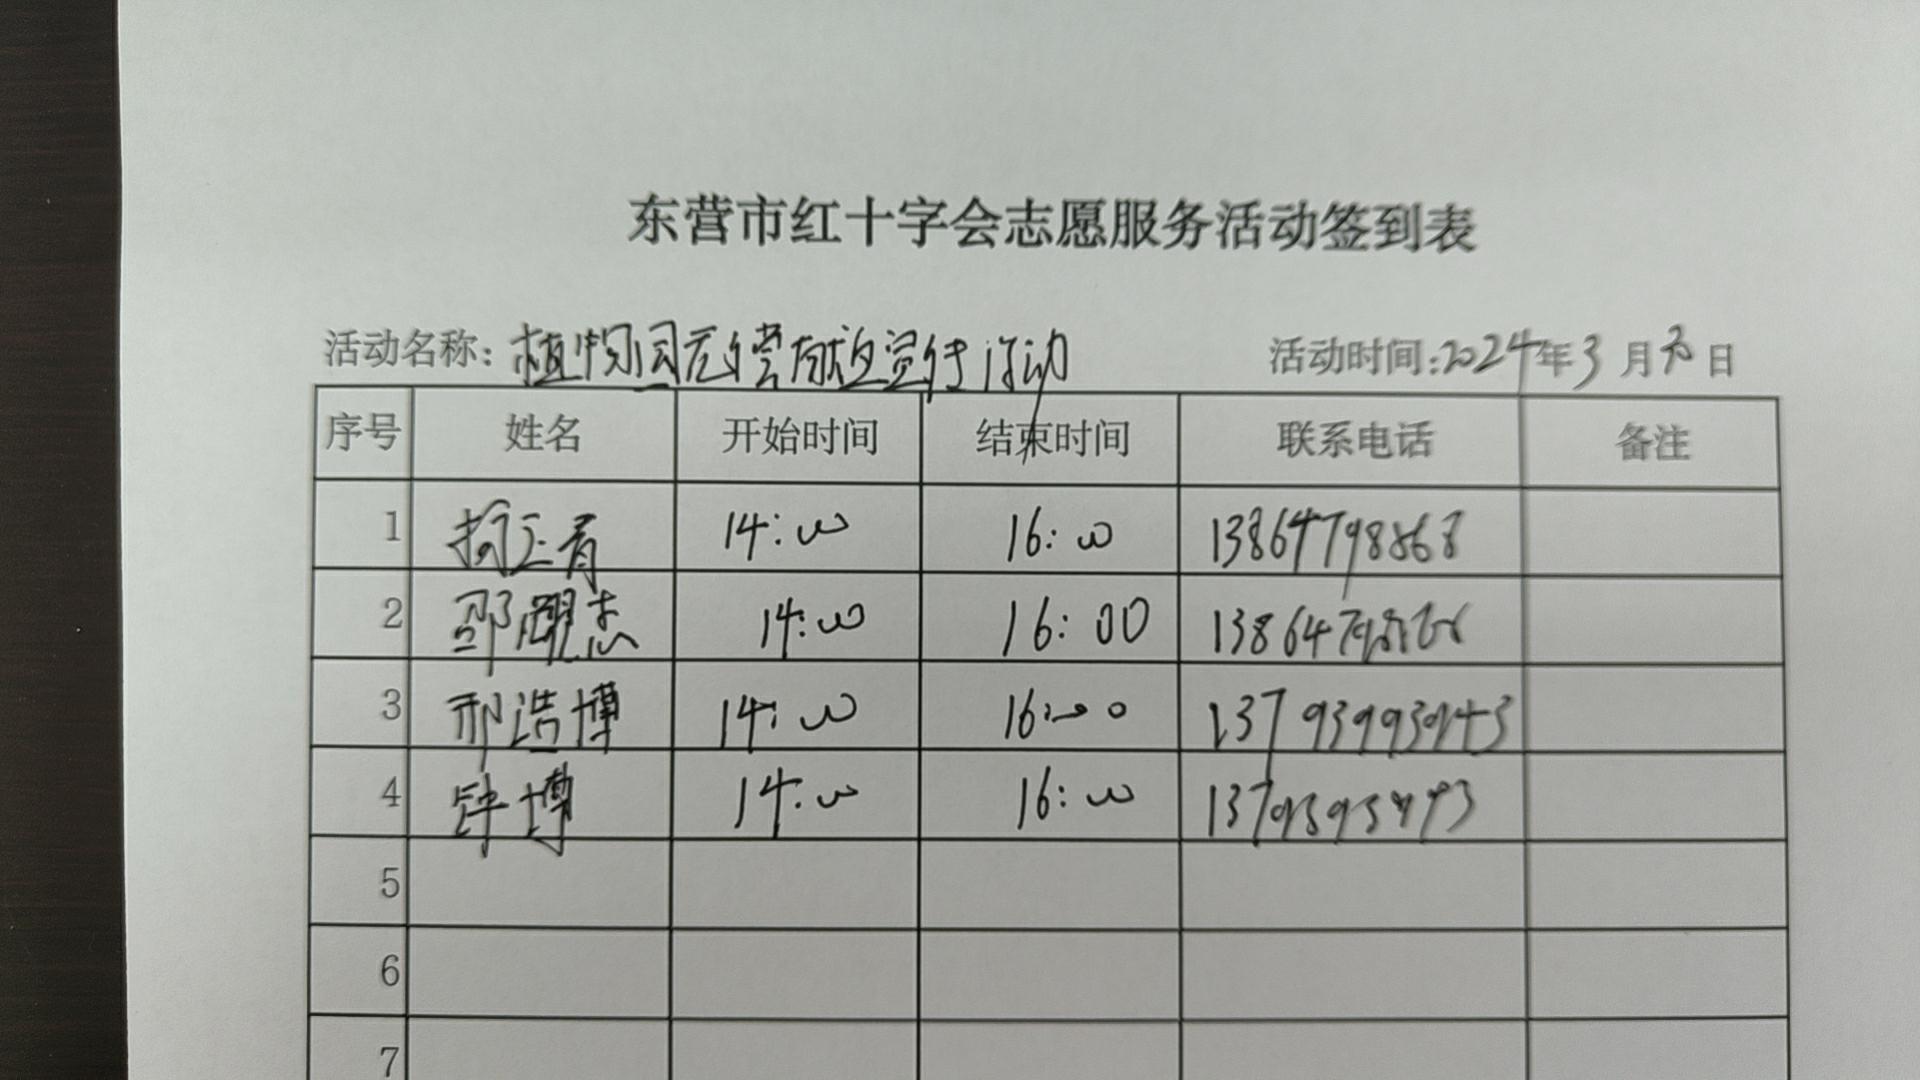 东营市红十字会志愿服务活动签到表
活动名称:植物园无偿献血宣传活动 活动时间:2024年3月30日
序号 姓名 开始时间 结束时间 联系电话 备注
1 14:00 16:00 13864798868
2 邵耀志 14:00 16:00
3 邢浩博 14:00 16:00 13793993943
4 钟博 14:00 16:00
5
6
7